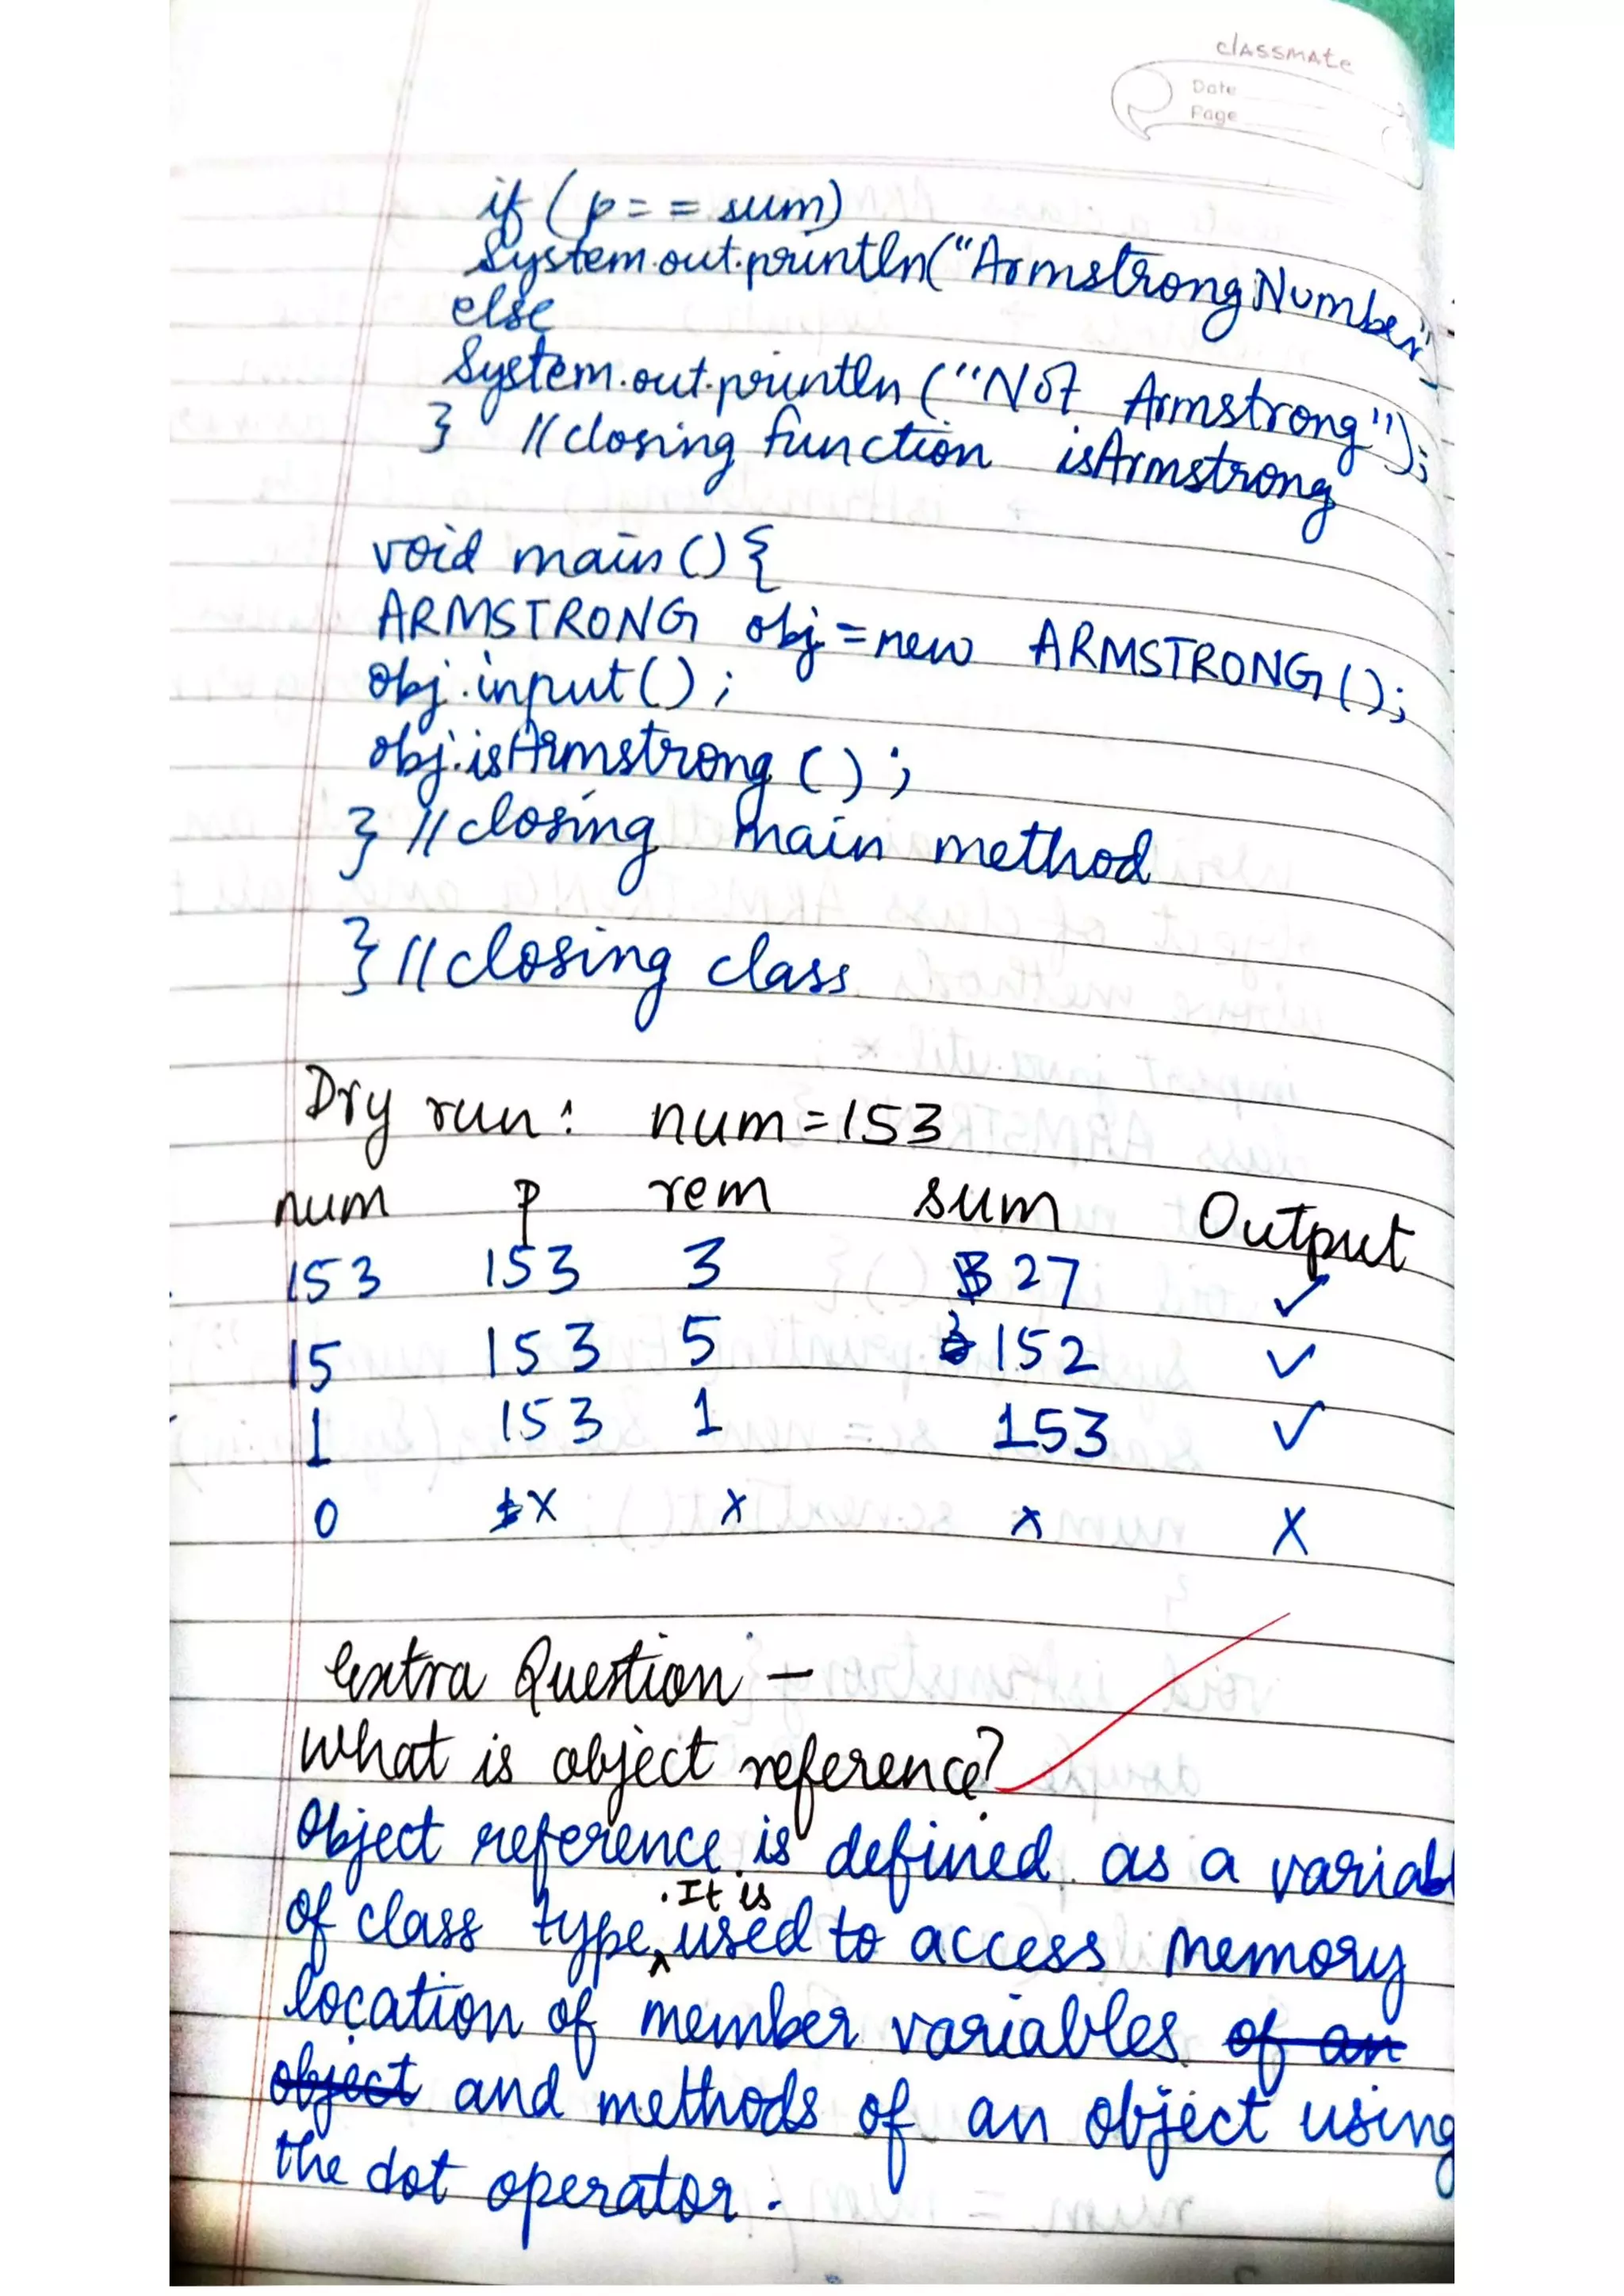 classmate
Date
Page
if (p == sum)
System.out.println("Armstrong Number"
else
System.out.println ("Not Armstrong");
} //closing function isArmstrong
void main () {
ARMSTRONG obj = new ARMSTRONG ();
obj.input();
obj.isArmstrong ();
} //closing main method
} //closing class
Dry run: num = 153
num p rem sum Output
153 153 3 27 ✓
15 153 5 152 ✓
1 153 1 153 ✓
0 x x x X
Extra Question -
What is object reference?
Object reference is defined as a variabl
of class type . It is used to access memory
location of member variables of an
object and methods of an object using
the dot operator.